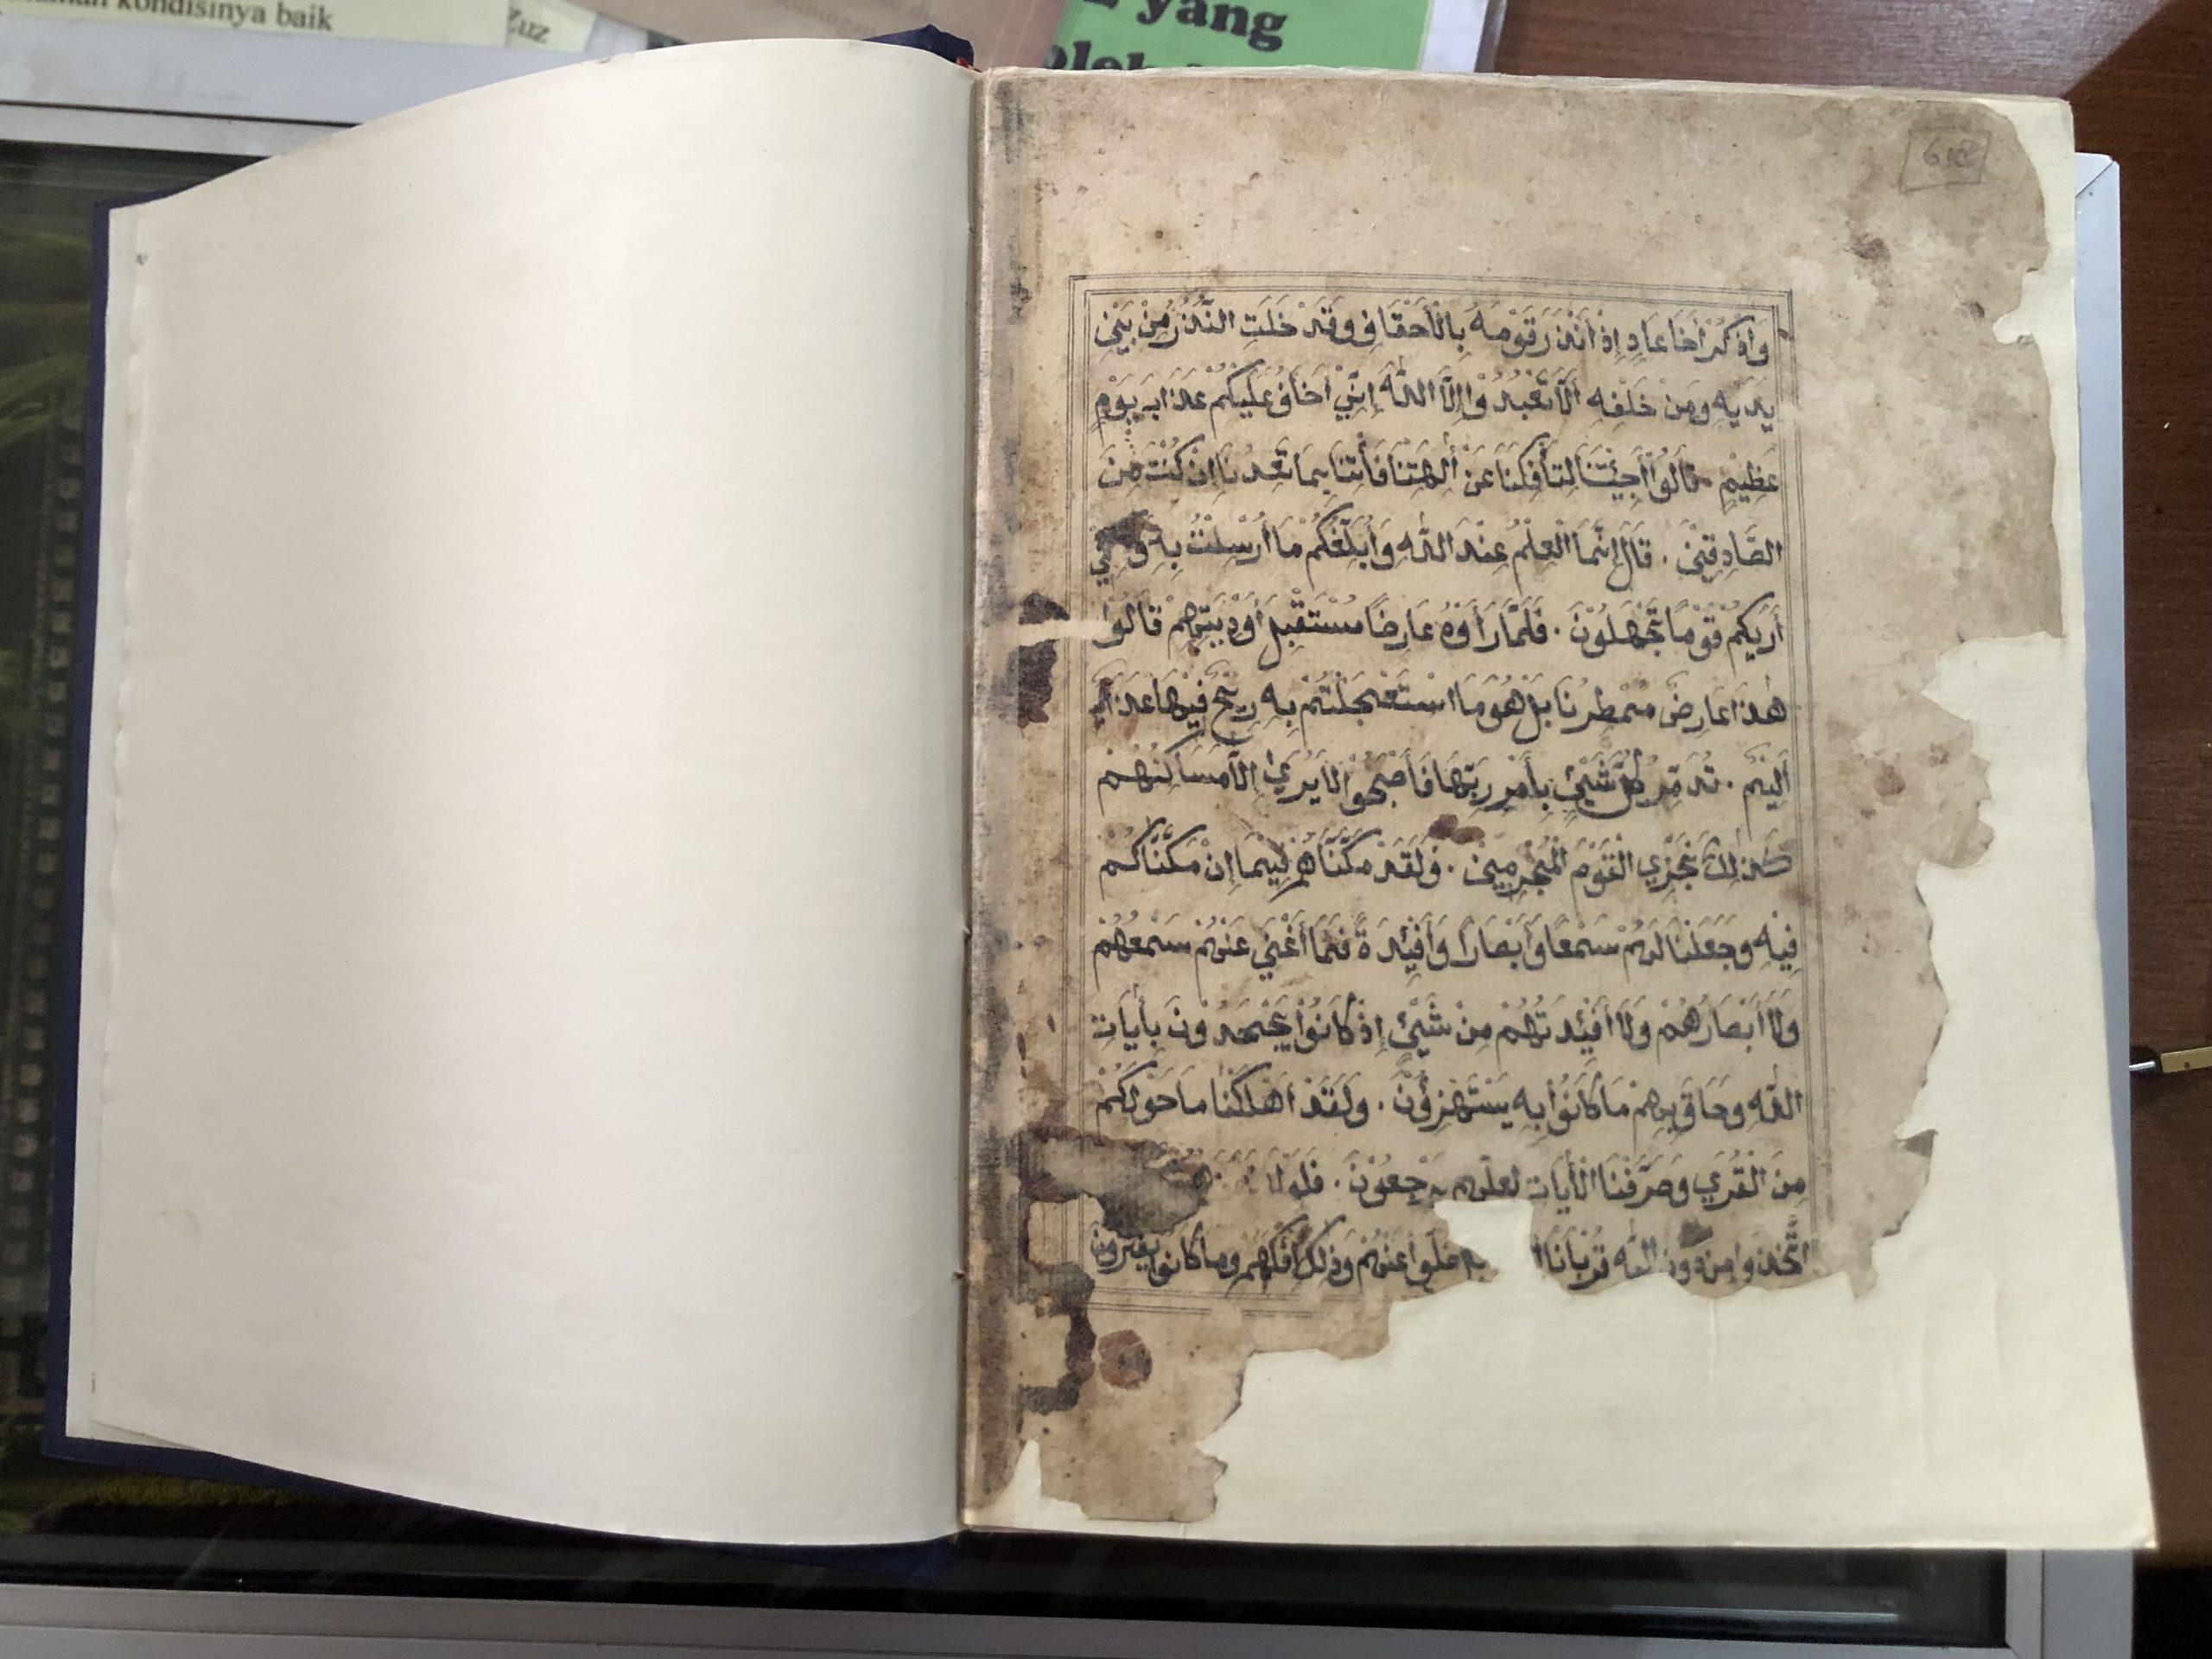 kondisinya baik
Zuz
yang
وَاذْكُرْ أَخَا عَادٍ إِذْ أَنْذَرَ قَوْمَهُ بِالْأَحْقَافِ وَقَدْ خَلَتِ النُّذُرُ مِنْ بَيْنِ
يَدَيْهِ وَمِنْ خَلْفِهِ أَلَّا تَعْبُدُوْا إِلَّا اللّٰهَ إِنِّيْ أَخَافُ عَلَيْكُمْ عَذَابَ يَوْمٍ
عَظِيْمٍ قَالُوْا أَجِئْتَنَا لِتَأْفِكَنَا عَنْ أٰلِهَتِنَا فَأْتِنَا بِمَا تَعِدُنَا إِنْ كُنْتَ مِنَ
الصَّادِقِيْنَ . قَالَ إِنَّمَا الْعِلْمُ عِنْدَ اللّٰهِ وَأُبَلِّغُكُمْ مَا أُرْسِلْتُ بِهِ
أَرٰيكُمْ قَوْمًا تَجْهَلُوْنَ . فَلَمَّا رَأَوْهُ عَارِضًا مُسْتَقْبِلَ أَوْدِيَتِهِمْ قَالُوْا
هٰذَا عَارِضٌ مُمْطِرُنَا بَلْ هُوَ مَا اسْتَعْجَلْتُمْ بِهِ رِيْحٌ فِيْهَا عَذَابٌ
أَلِيْمٌ . تُدَمِّرُ كُلَّ شَيْئٍ بِأَمْرِ رَبِّهَا فَأَصْبَحُوْا لَا يُرٰي إِلَّا مَسَاكِنُهُمْ
كَذٰلِكَ نَجْزِي الْقَوْمَ الْمُجْرِمِيْنَ . وَلَقَدْ مَكَّنَّاهُمْ فِيْمَا إِنْ مَكَّنَّاكُمْ
فِيْهِ وَجَعَلْنَا لَهُمْ سَمْعًا وَأَبْصَارًا وَأَفْئِدَةً فَمَا أَغْنٰي عَنْهُمْ سَمْعُهُمْ
وَلَا أَبْصَارُهُمْ وَلَا أَفْئِدَتُهُمْ مِنْ شَيْئٍ إِذْ كَانُوْا يَجْحَدُوْنَ بِأٰيَاتِ
اللّٰهِ وَحَاقَ بِهِمْ مَا كَانُوْا بِهِ يَسْتَهْزِؤُنَ . وَلَقَدْ أَهْلَكْنَا مَا حَوْلَكُمْ
مِنَ الْقُرٰي وَصَرَّفْنَا الْأٰيَاتِ لَعَلَّهُمْ يَرْجِعُوْنَ . فَلَوْلَا
اتَّخَذُوا مِنْ دُوْنِ اللّٰهِ قُرْبَانًا بَلْ ضَلُّوا عَنْهُمْ وَذٰلِكَ إِفْكُهُمْ وَمَا كَانُوا يَفْتَرُونَ